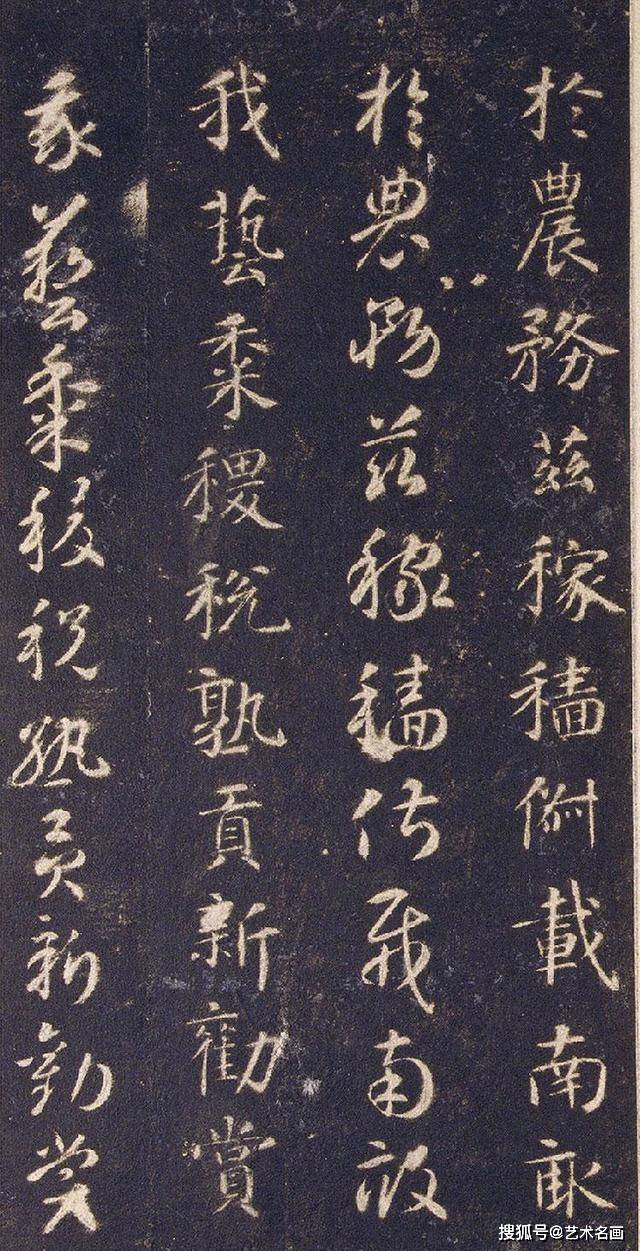 於農務茲稼穡俶載南畝
於農務茲稼穡俶載南畝
我藝黍稷稅熟貢新勸賞
我藝黍稷稅熟貢新勸賞
搜狐号@艺术名画